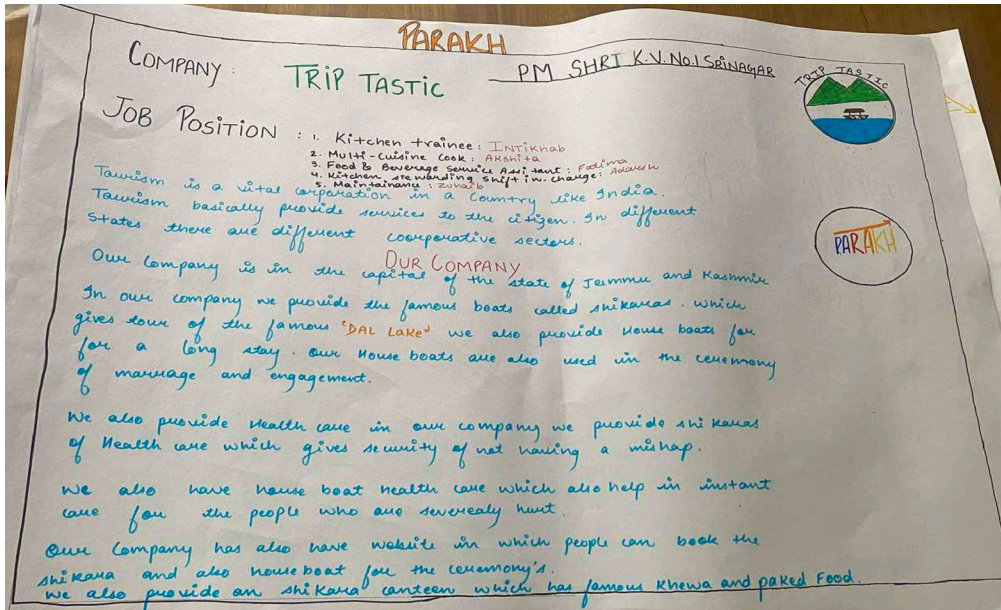 PARAKH
COMPANY: TRIP TASTIC
PM SHRI K.V. No.1 SRINAGAR
TRIP TASTIC
JOB POSITION : 1. Kitchen trainee : INTIKHAB
2. Multi-Cuisine Cook : AKSHITA
3. Food & Beverage Service Assitant : Fadima
4. Kitchen stewarding Shift in-charge: Adavesh
5. Maintainance : Zuhaib
Tourism is a vital corporation in a country like India.
Tourism basically provide services to the citizen. In different
States there are different coorporative sectors.
PARAKH
OUR COMPANY
Our Company is in the capital of the state of Jammu and Kashmir
In our company we provide the famous boats called shikaras. which
gives tour of the famous 'DAL LAKE' we also provide House boats for
for a long stay. Our House boats are also used in the ceremony
of marriage and engagement.
We also provide Health care in our company we provide shikaras
of Health care which gives security of not having a mishap.
We also have house boat health care which also help in instant
care for the people who are severealy hurt.
Our Company has also have website in which people can book the
shikara and also houseboat for the ceremony's.
We also provide an shikara canteen which has famous Khewa and paked Food.